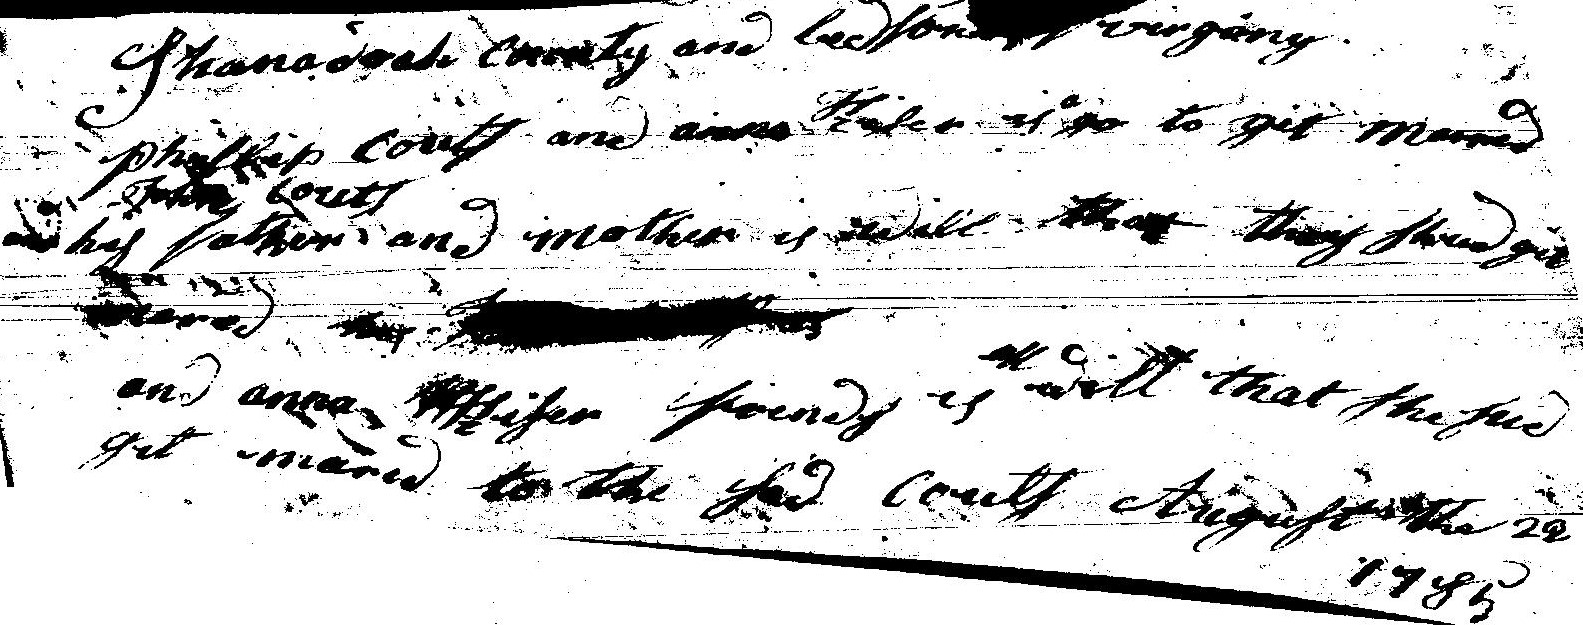 Shanadoah County and virginy
phillip Couts and anna is a go to git mared
John Couts
his father and mother is will that they shoud git
mared
and anna friends is all will that she sud
git mared to the sad Couts August the 22
1785